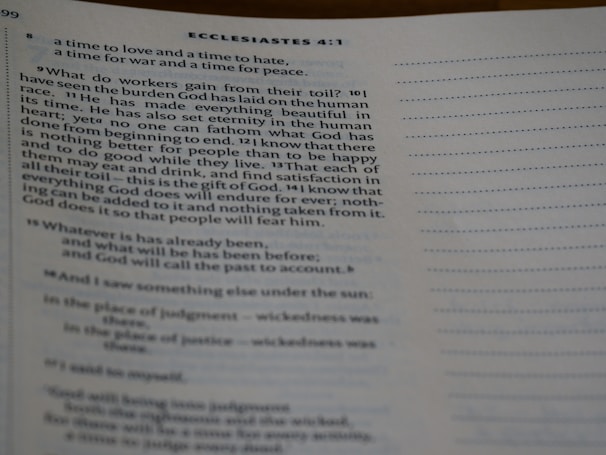 99
ECCLESIASTES 4:1
8 a time to love and a time to hate,
a time for war and a time for peace.
9 What do workers gain from their toil? 10 I
have seen the burden God has laid on the human
race. 11 He has made everything beautiful in
its time. He has also set eternity in the human
heart; yet a no one can fathom what God has
done from beginning to end. 12 I know that there
is nothing better for people than to be happy
and to do good while they live. 13 That each of
them may eat and drink, and find satisfaction in
all their toil – this is the gift of God. 14 I know that
everything God does will endure for ever; noth-
ing can be added to it and nothing taken from it.
God does it so that people will fear him.
15 Whatever is has already been,
and what will be has been before;
and God will call the past to account. b
16 And I saw something else under the sun:
in the place of judgment – wickedness was
there,
in the place of justice – wickedness was
there.
17 I said to myself,
'God will bring into judgment
both the righteous and the wicked,
for there will be a time for every activity,
a time to judge every deed.